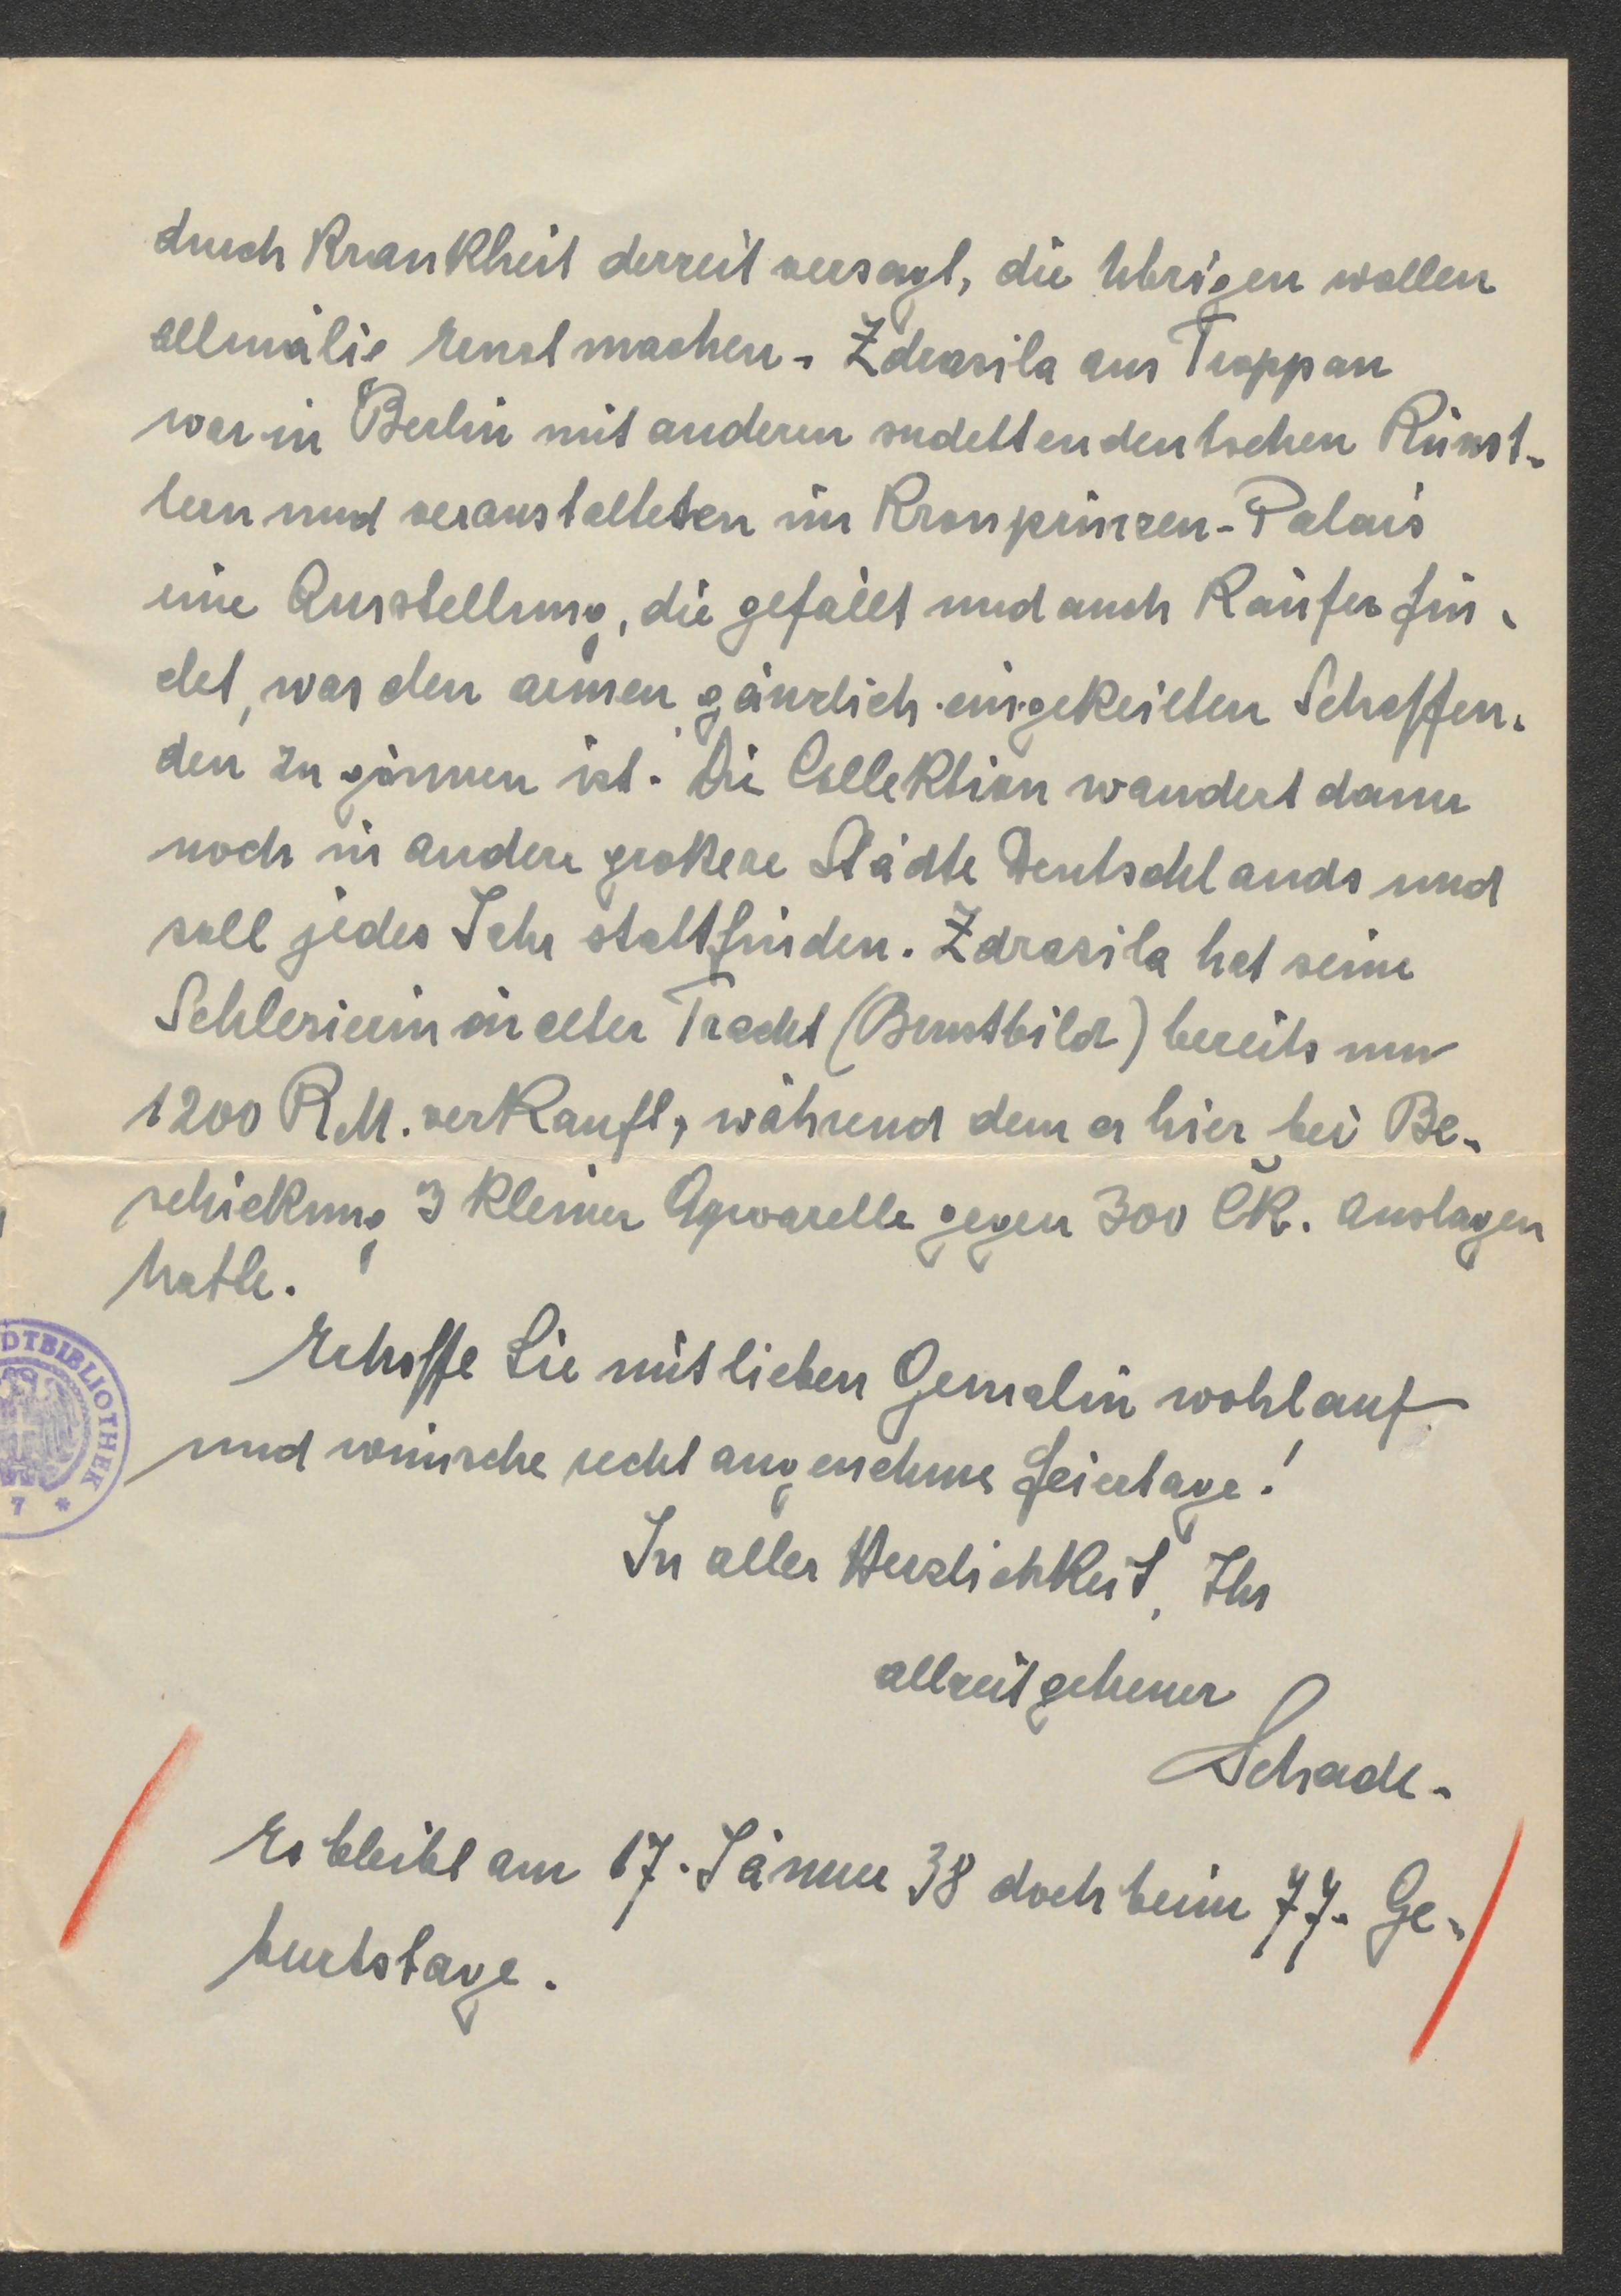 durch Krankheit derzeit versagt, die Übrigen wollen
allmälig Ernst machen. Zdrasila aus Troppau
war in Berlin mit anderen sudettendeutschen Künst-
lern und veranstalteten im Kronprinzen-Palais
eine Ausstellung, die gefällt und auch Käufer fin-
det, was den armen gänzlich eingekeilten Schaffen-
den zu gönnen ist. Die Collektion wandert dann
noch in andere größere Städte Deutschlands und
soll jedes Jahr stattfinden. Zdrasila hat seine
Schlesierin in alter Tracht (Brustbild) bereits um
1200 RM. verkauft, während dem er hier bei Be-
schickung 3 kleiner Aqwarelle gegen 300 čK. Auslagen
hatte.
Erhoffe Sie mit lieben Gemalin wohlauf
und wünsche recht angenehme Feiertage!
In aller Herzlichkeit, Ihr
allzeit getreuer
Schade.
Es bleibt am 17. Jänner 38 doch beim 77. Ge-
burtstage.
DTBIBLIOTHEK
7 *